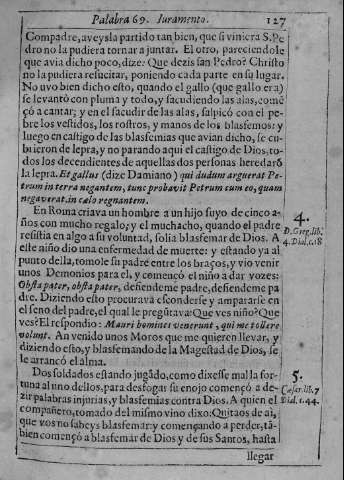 Palabra 69. Iuramento. 127
Compadre, aveys la partido tan bien, que si viniera S. Pe
dro no la pudiera tornar a juntar. El otro, pareciendole
que avia dicho poco, dize: Que dezis san Pedro? Christo
no la pudiera resucitar, poniendo cada parte en su lugar.
No uvo bien dicho esto, quando el gallo (que gallo era)
se levantò con pluma y todo, y sacudiendo las alas, comẽ
çò a cantar; y en el sacudir de las alas, salpicò con el pe-
bre los vestidos, los rostros, y manos de los blasfemos: y
luego en castigo de las blasfemias que avian dicho, se cu
brieron de lepra, y no parando aqui el castigo de Dios, to-
dos los decendientes de aquellas dos personas heredarõ
la lepra. Et gallus (dize Damiano) qui dudum arguerat Pe-
trum in terra negantem, tunc probavit Petrum cum eo, quam
negaverat, in cælo regnantem.
En Roma criava un hombre a un hijo suyo de cinco a-
ños con mucho regalo; y el muchacho, quando el padre
resistia en algo a su voluntad, solia blasfemar de Dios. A
este niño dio una enfermedad de muerte: y estando ya al
punto della, tomole su padre entre los braços, y vio venir
unos Demonios para el, y començò el niño a dar vozes:
Obsta pater, obsta pater, defiendeme padre, defiendeme pa
dre. Diziendo esto procurava esconderse y ampararse en
el seno del padre, el qual le pregũtava: Que ves niño? Que
ves? El respondio: Mauri homines venerunt, qui me tollere
volunt. An venido unos Moros que me quieren llevar, y
diziendo esto, y blasfemando de la Magestad de Dios, se
le arrancò el alma.
Dos soldados estando jugãdo, como dixesse mal la for-
tuna al uno dellos, para desfogar su enojo començò a de-
zir palabras injurias, y blasfemias contra Dios. A quien el
compañero, tomado del mismo vino dixo: Quitaos de ai,
que vos no sabeys blasfemar: y començando a perder, tã-
bien començò a blasfemar de Dios y de sus Santos, hasta
llegar
4.
D. Greg. lib.
4. Dial. c. 18
5.
Cæsar. lib. 7
Dial. c. 44.